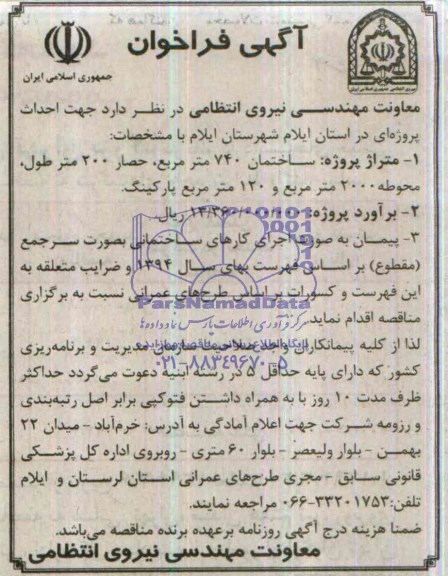 آگهی فراخوان
جمهوری اسلامی ایران
معاونت مهندسی نیروی انتظامی در نظر دارد جهت احداث
پروژه‌ای در استان ایلام شهرستان ایلام با مشخصات:
۱- متراژ پروژه: ساختمان ۷۴۰ متر مربع، حصار ۲۰۰ متر طول،
محوطه ۲۰۰۰ متر مربع و ۱۲۰ متر مربع پارکینگ.
۲- برآورد پروژه: ریال.
۳- پیمان به صورت اجرای کارهای ساختمانی بصورت سرجمع
(مقطوع) بر اساس فهرست بهای سال ۱۳۹۴ و ضرایب متعلقه به
این فهرست و کسورات بر اساس طرح‌های عمرانی نسبت به برگزاری
مناقصه اقدام نماید.
ParsNamadData
مرکز فرآوری اطلاعات پارس نماد داده‌ها
لذا از کلیه پیمانکاران واجد صلاحیت سازمان مدیریت و برنامه‌ریزی
پایگاه اطلاع رسانی مناقصه و مزایده
کشور که دارای پایه حداقل ۵ در رسته ابنیه دعوت می‌گردد حداکثر
۰۲۱-۸۸۳۴۹۶۷۰-۵
ظرف مدت ۱۰ روز با به همراه داشتن فتوکپی برابر اصل رتبه‌بندی
و رزومه شرکت جهت اعلام آمادگی به آدرس: خرم‌آباد - میدان ۲۲
بهمن - بلوار ولیعصر - بلوار ۶۰ متری - روبروی اداره کل پزشکی
قانونی سابق - مجری طرح‌های عمرانی استان لرستان و ایلام
تلفن: ۳۳۲۰۱۷۵۳-۰۶۶ مراجعه نمایند.
ضمنا هزینه درج آگهی روزنامه برعهده برنده مناقصه می‌باشد.
معاونت مهندسی نیروی انتظامی